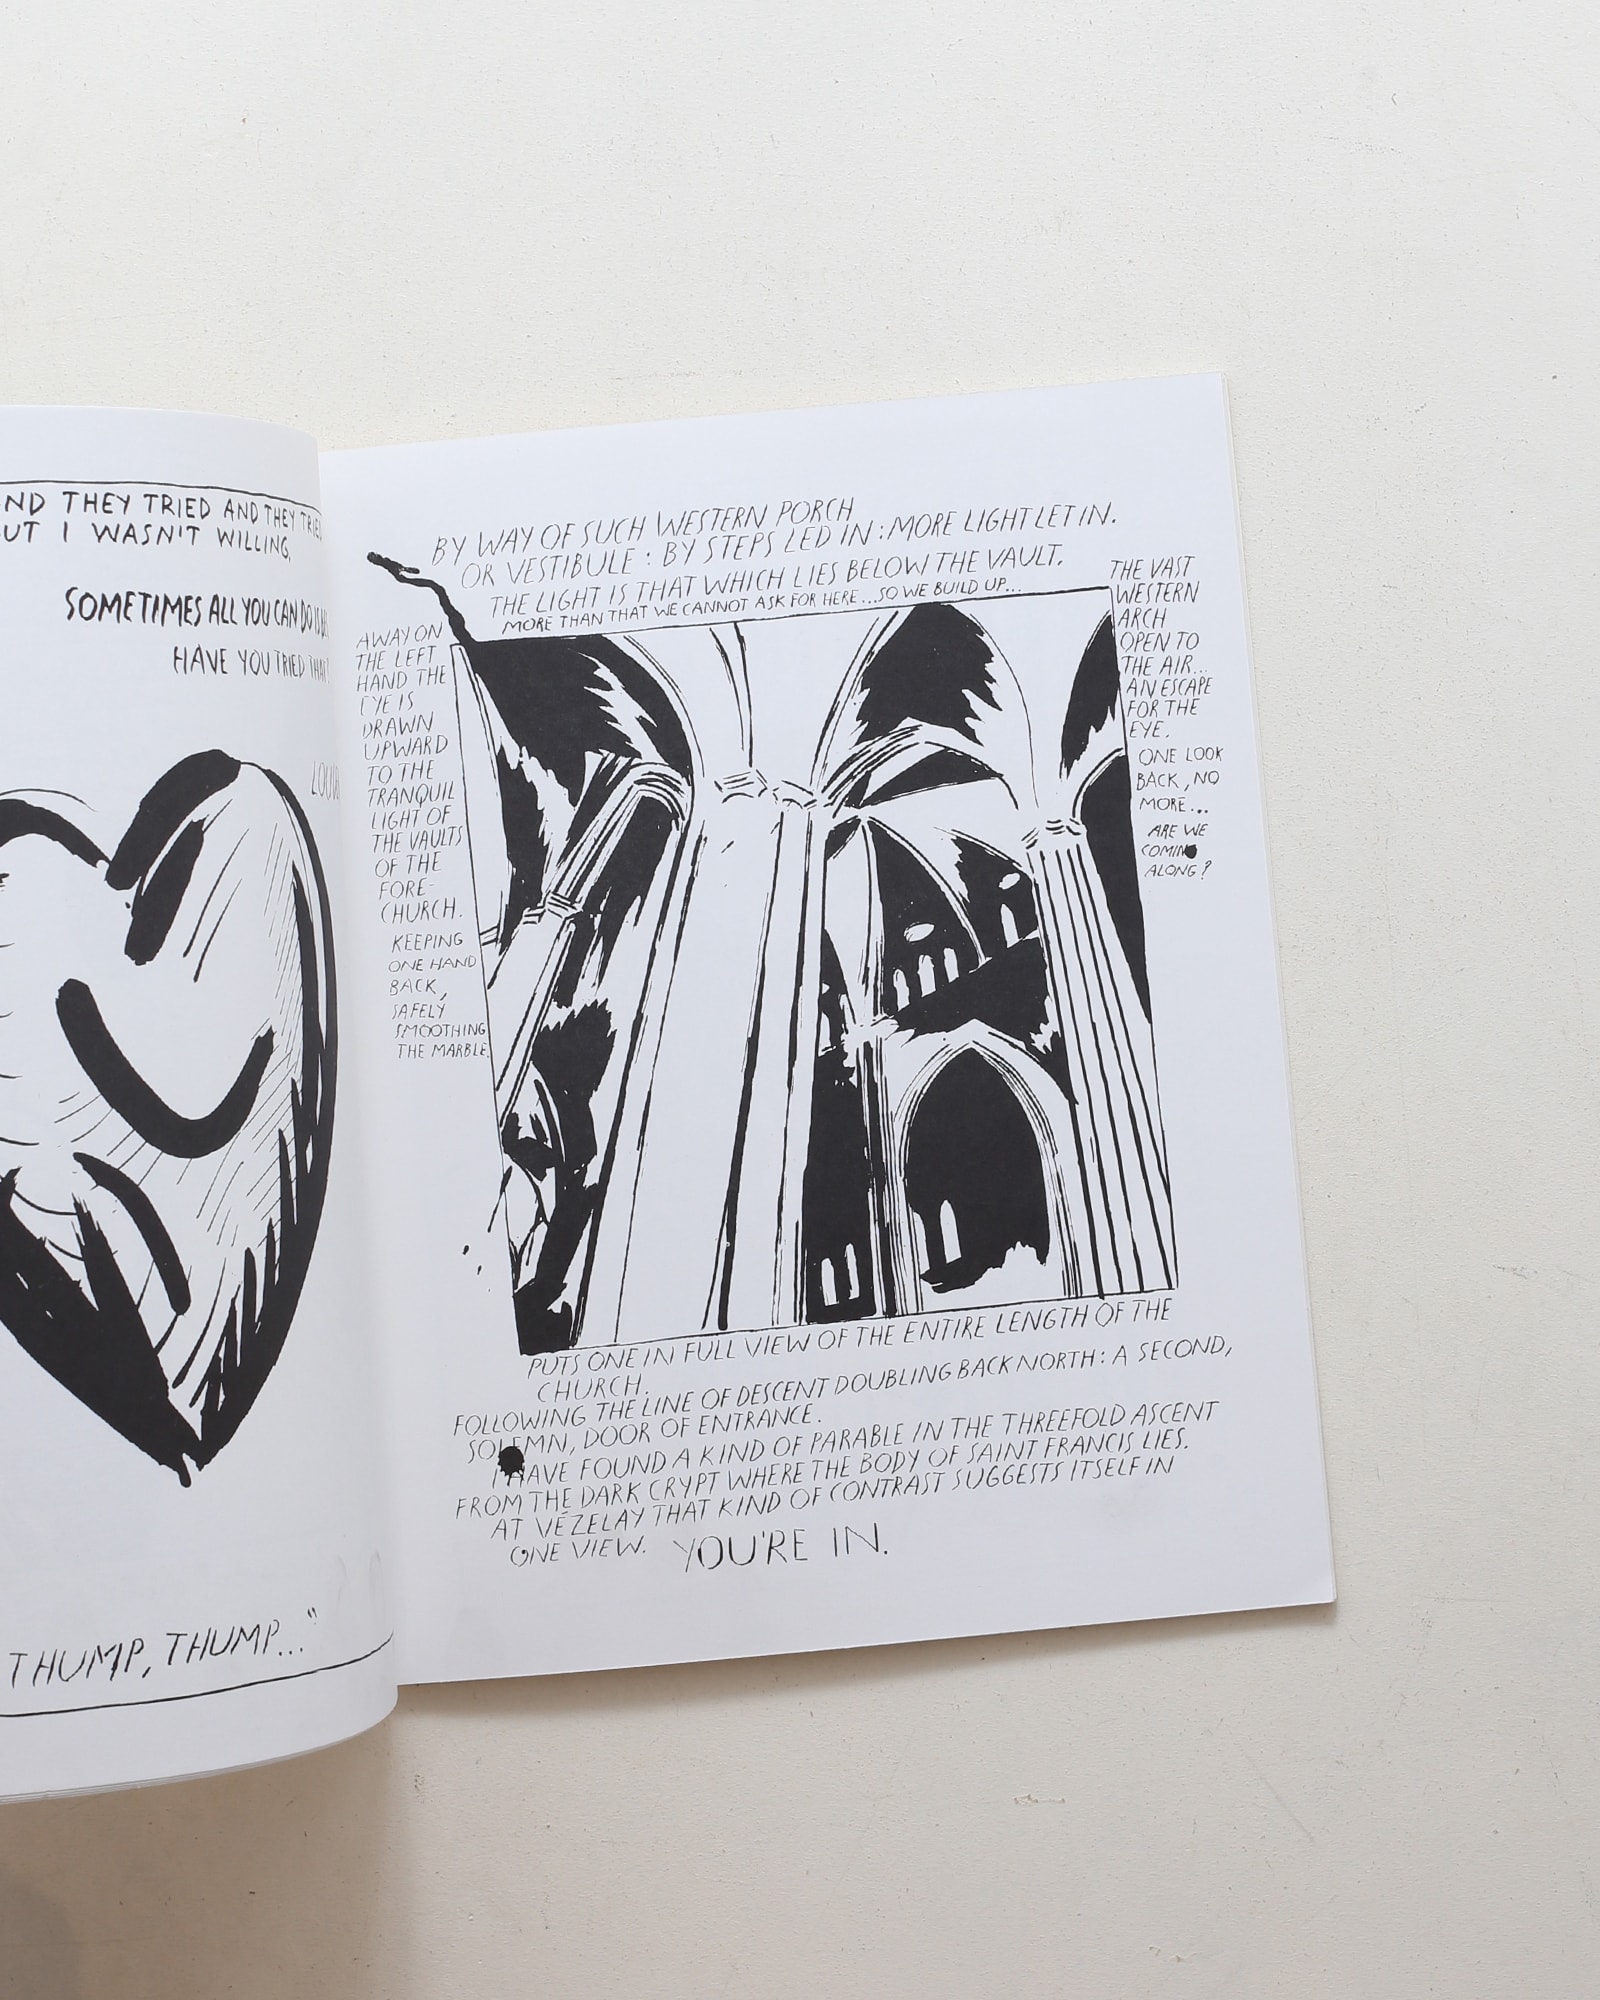 ND THEY TRIED AND THEY TRIED
UT I WASN'T WILLING,
SOMETIMES ALL YOU CAN DO IS
HAVE YOU TRIED
THUMP, THUMP..."
BY WAY OF SUCH WESTERN PORCH
OR VESTIBULE : BY STEPS LED IN : MORE LIGHT LET IN.
THE LIGHT IS THAT WHICH LIES BELOW THE VAULT.
MORE THAN THAT WE CANNOT ASK FOR HERE...SO WE BUILD UP...
AWAY ON
THE LEFT
HAND THE
EYE IS
DRAWN
UPWARD
TO THE
TRANQUIL
LIGHT OF
THE VAULTS
OF THE
FORE-
CHURCH.
KEEPING
ONE HAND
BACK,
SAFELY
SMOOTHING
THE MARBLE.
THE VAST
WESTERN
ARCH
OPEN TO
THE AIR...
AN ESCAPE
FOR THE
EYE.
ONE LOOK
BACK, NO
MORE...
ARE WE
COMING
ALONG?
PUTS ONE IN FULL VIEW OF THE ENTIRE LENGTH OF THE
CHURCH.
FOLLOWING THE LINE OF DESCENT DOUBLING BACK NORTH: A SECOND,
SOLEMN, DOOR OF ENTRANCE.
I HAVE FOUND A KIND OF PARABLE IN THE THREEFOLD ASCENT
FROM THE DARK CRYPT WHERE THE BODY OF SAINT FRANCIS LIES.
AT VÉZELAY THAT KIND OF CONTRAST SUGGESTS ITSELF IN
ONE VIEW. YOU'RE IN.